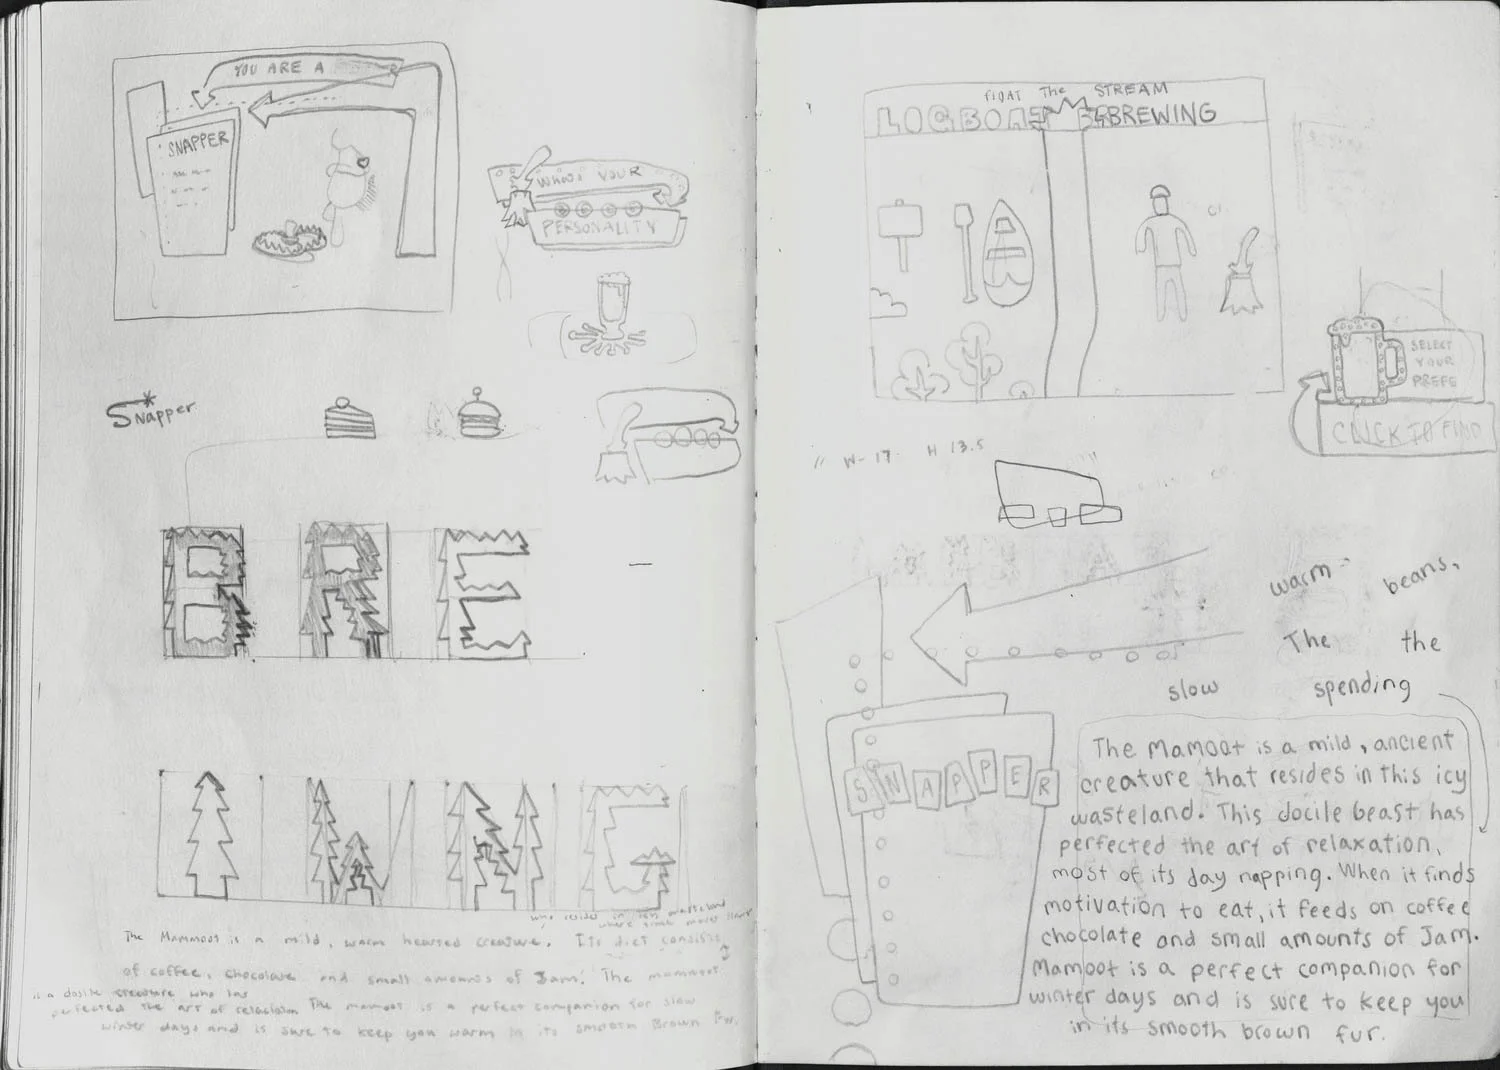 YOU ARE A
SNAPPER
WHAT'S YOUR
PERSONALITY
SNAPPER
BRE
The Mammoot is a mild, warm hearted creature. Its diet consists
who resides in this wasteland
where time moves slower
of coffee, chocolate and small amounts of Jam. The mammoot
is a docile creature who has
perfected the art of relaxation The mamoot is a perfect companion for slow
winter days and is sure to keep you warm in its smooth Brown Fur.
FLOAT The STREAM
LOGBOAT BREWING
SELECT
YOUR
PREFE
CLICK TO FIND
W-17 H 13.5
warm-
beans,
The the
slow spending
SNAPPER
The Mamoot is a mild, ancient
creature that resides in this icy
wasteland. This docile beast has
perfected the art of relaxation,
most of its day napping. When it finds
motivation to eat, it feeds on coffee
chocolate and small amounts of Jam.
Mamoot is a perfect companion for
winter days and is sure to keep you
in its smooth brown fur.